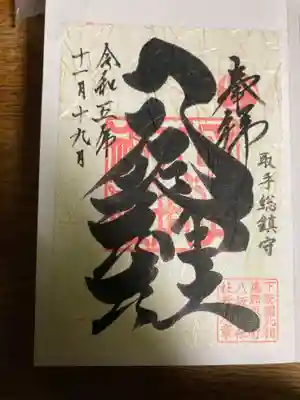 奉拝
取手総鎮守
八坂神社
令和五年
十一月十九日